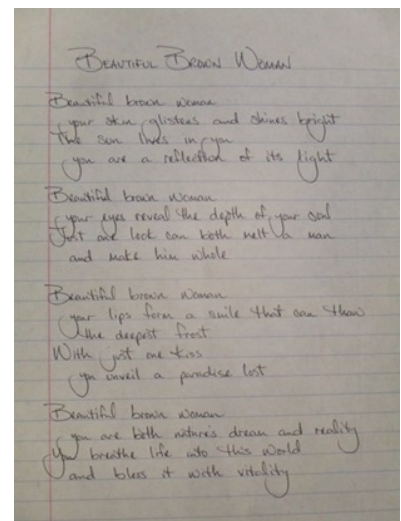 BEAUTIFUL BROWN WOMAN
Beautiful brown woman
your skin glistens and shines bright
The sun lives in you
you are a reflection of its light
Beautiful brown woman
your eyes reveal the depth of your soul
Just one look can both melt a man
and make him whole
Beautiful brown woman
your lips form a smile that can thaw
the deepest frost
With just one kiss
you unveil a paradise lost
Beautiful brown woman
you are both nature's dream and reality
You breathe life into this world
and bless it with vitality